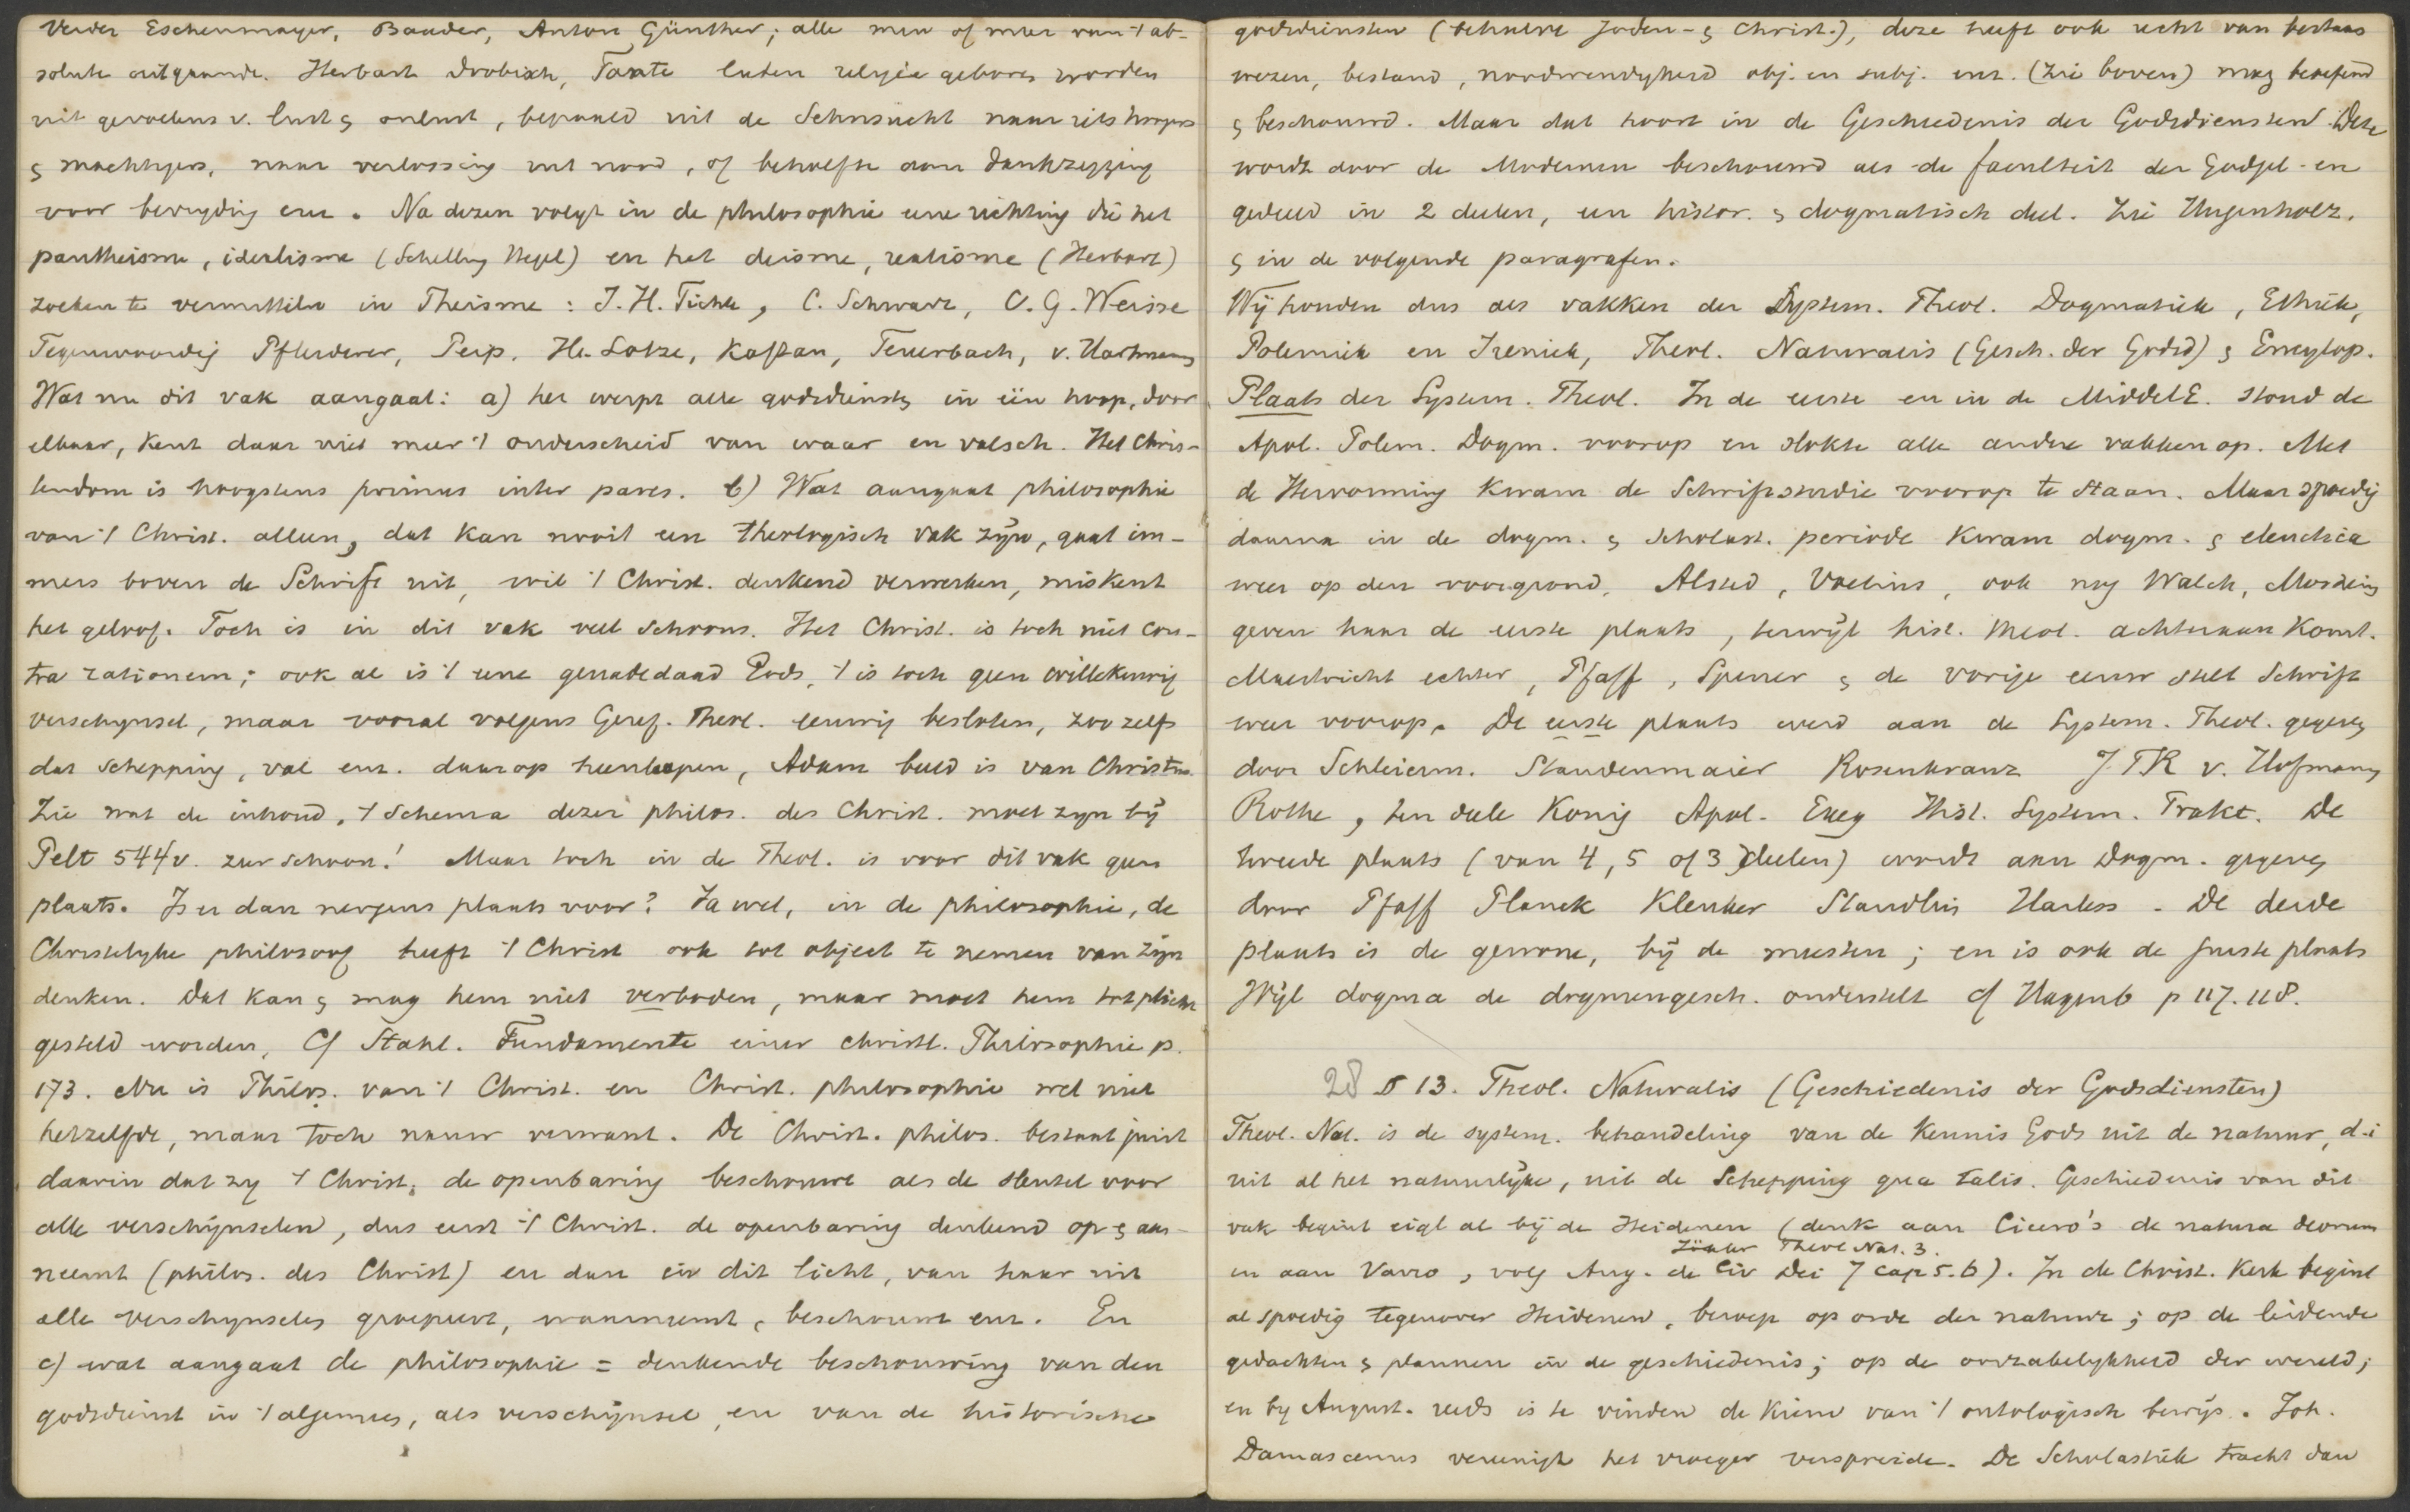 Verder Eschenmayer, Baader, Anton Günther; alle min of meer van 't ab-
solute uitgaande. Herbart Drobisch, Taute laten religie geboren worden
uit gevoelens v. lust & onlust, bepaald uit de Sehnsucht naar iets hoogers
& machtigers, naar verlossing uit nood, of behoefte aan dankzegging
voor bevrijding enz. Na dezen volgt in de philosophie eene richting die het
pantheisme, idealisme (Schelling Hegel) en het deisme, realisme (Herbart)
zoeken te vermittelen in Theisme: J. H. Fichte, C. Schwarz, C. G. Weisse
Tegenwoordig Pfleiderer, Peip, He. Lotze, Kaftan, Feuerbach, v. Hartmann
Wat nu dit vak aangaat: a) het werpt alle godsdiensten in één hoop, door
elkaar, kent daar niet meer 't onderscheid van waar en valsch. Het Chris-
tendom is hoogstens primus inter pares. b) Wat aangaat philosophie
van 't Christ. alleen, dat kan nooit een theologisch vak zijn, gaat im-
mers boven de Schrift uit, wil 't Christ. denkend verwerken, miskent
het geloof. Toch is in dit vak veel schoons. Het Christ. is toch niet con-
tra rationem; ook al is 't eene genadedaad Gods, 't is toch geen willekeurig
verschijnsel, maar vooral volgens Geref. Theol. eeuwig besloten, zoo zelfs
dat schepping, val enz. daarop heenloopen, Adam beeld is van Christus.
Zie wat de inhoud, 't schema dezer philos. des Christ. moet zijn bij
Pelt 544v. zeer schoon! Maar toch in de Theol. is voor dit vak geen
plaats. Is er dan nergens plaats voor? Ja wel, in de philosophie, de
Christelyke philosoof heeft 't Christ ook tot object te nemen van zijn
denken. Dat kan & mag hem niet verboden, maar moet hem tot plicht
gesteld worden, Cf Stahl. Fundamente einer christl. Philosophie p.
173. Nu is Philos. van 't Christ. en Christ. philosophie wel niet
hetzelfde, maar toch nauw verwant. De Christ. philos. bestaat juist
daarin dat zy 't Christ, de openbaring beschouwt als de sleutel voor
alle verschijnselen, dus eerst 't Christ. de openbaring denkend op & aan-
neemt (philos. des Christ) en dan in dit licht, van haar uit
alle verschynselen groepeert, waarneemt, beschouwt enz. En
c) wat aangaat de philosophie = denkende beschouwing van den
godsdienst in 't algemeen, als verschijnsel, en van de historische
godsdiensten (behalve Joden- & Christ.), deze heeft ook recht van bestaan
wezen, bestand, noodwendigheid obj. en subj. enz. (zie boven) mag beoefend
& beschouwd. Maar dat hoort in de Geschiedenis der Godsdiensten. Deze
wordt door de Modernen beschouwd als de faculteit der Godgel. en
gedeeld in 2 deelen, een histor. & dogmatisch deel. Zie Hugenholz.
& in de volgende paragrafen.
Wij houden dus als vakken der System. Theol. Dogmatiek, Ethiek,
Polemiek en Ireniek, Theol. Naturalis (Gesch. der Godsd) & Encyclop.
Plaats der System. Theol. In de eerste en in de MiddelE. stond de
Apol. Polem. Dogm. voorop en slokte alle andere vakken op. Met
de Hervorming kwam de Schriftstudie voorop te staan. Maar spoedig
daarna in de dogm. & scholast. periode kwam dogm. & elenctica
weer op den voorgrond, Alsted, Voetius, ook nog Walch, Mosheim
geven haar de eerste plaats, terwijl hist. theol. achteraan komt.
Maestricht echter, Pfaff, Spener & de vorige eeuw stelt Schrift
weer voorop. De eerste plaats werd aan de System. Theol. gegeven
door Schleierm. Staudenmaier Rosenkranz JTR v. Hofmann
Rothe, ten deele Konig Apol. Exeg Hist. System. Prakt. De
tweede plaats (van 4, 5 of 3 deelen) wordt aan Dogm. gegeven
door Pfaff Planck Kleuker Staudlin Harless. De derde
plaats is de gewone, bij de meesten; en is ook de juiste plaats
Wijl dogma de dogmengesch. onderstelt cf Hagenb p 117. 118.
28 § 13. Theol. Naturalis (Geschiedenis der Godsdiensten)
Theol. Nat. is de system. behandeling van de kennis Gods uit de natuur, d.i
uit al het natuurlijke, uit de Schepping qua talis. Geschiedenis van dit
vak begint eigl al bij de Heidenen (denk aan Cicero's de natura deorum
Zöckler Theol Nat. 3.
en aan Varro, volg Aug. de Civ Dei 7 cap 5. 6). In de Christ. Kerk begint
al spoedig tegenover Heidenen, beroep op orde der natuur; op de leidende
gedachten & plannen in de geschiedenis; op de onvzabelykheid der wereld;
en by August. reeds is te vinden de kiem van 't ontologisch bewijs. Joh.
Damascenus vereenigt het vroeger verspreide. De Scholastiek tracht dan